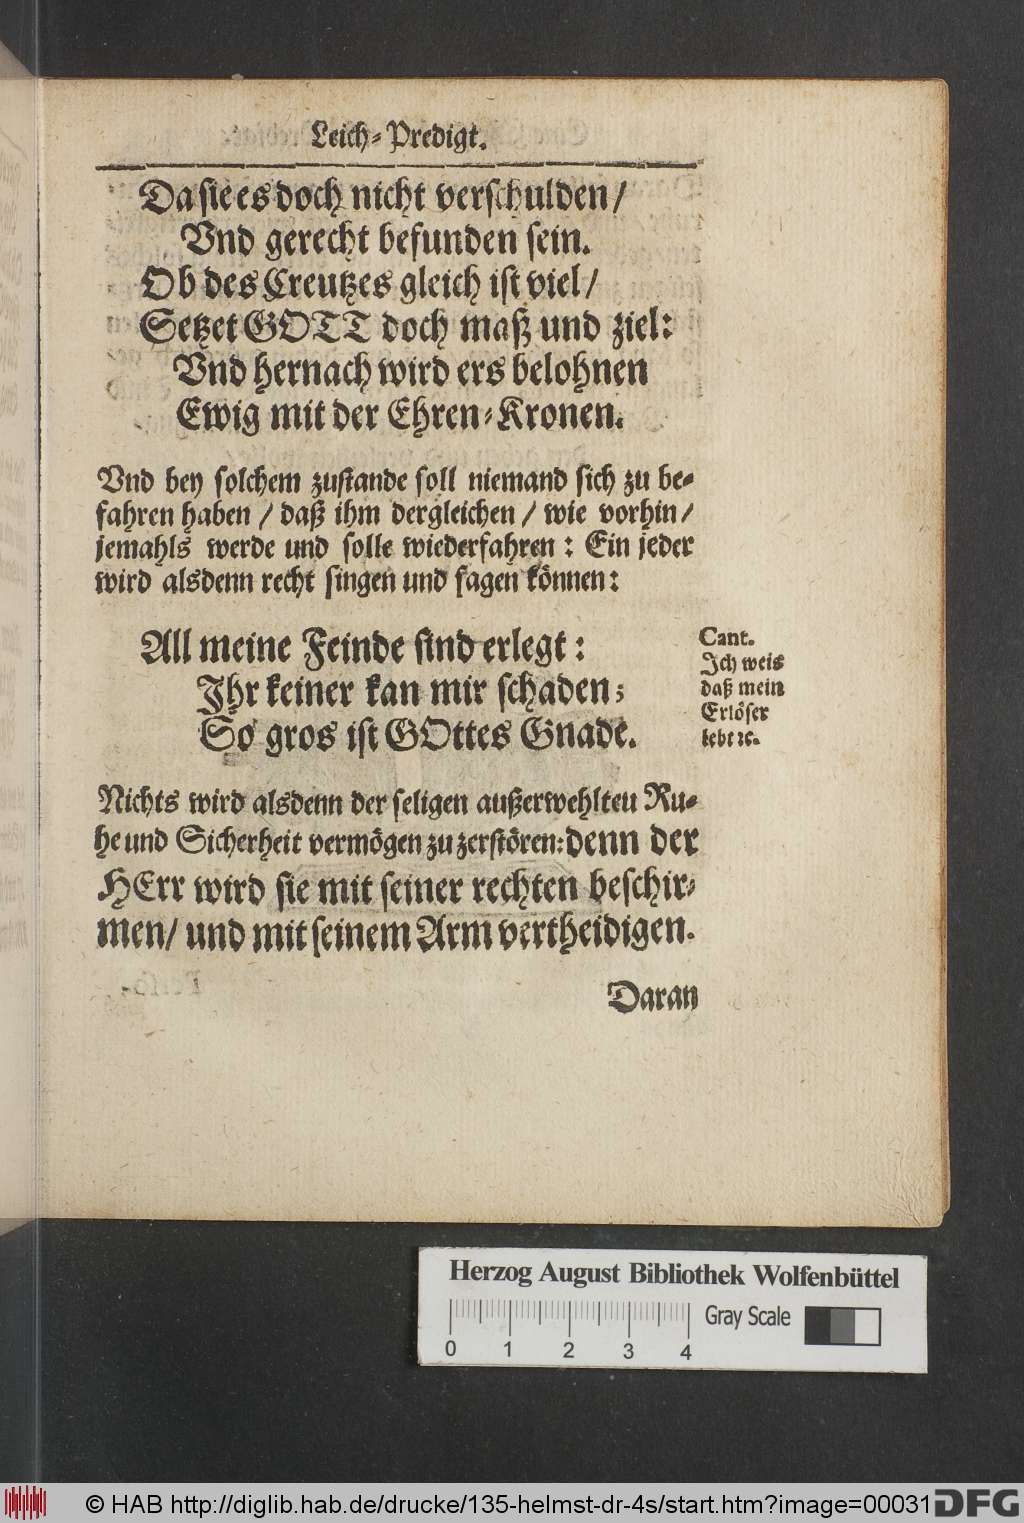 Leich-Predigt.
Da sie es doch nicht verschulden/
Vnd gerecht befunden sein.
Ob des Creutzes gleich ist viel/
Setzet GOTT doch maß und ziel:
Vnd hernach wird ers belohnen
Ewig mit der Ehren-Kronen.
Vnd bey solchem zustande soll niemand sich zu be-
fahren haben / daß ihm dergleichen / wie vorhin/
jemahls werde und solle wiederfahren : Ein jeder
wird alsdenn recht singen und sagen können:
All meine Feinde sind erlegt :
Ihr keiner kan mir schaden;
So gros ist GOttes Gnade.
Cant.
Ich weis
daß mein
Erlöser
lebt ꝛc.
Nichts wird alsdenn der seligen außerwehlten Ru-
he und Sicherheit vermögen zu zerstören: denn der
HErr wird sie mit seiner rechten beschir-
men/ und mit seinem Arm vertheidigen.
Daran
Herzog August Bibliothek Wolfenbüttel
Gray Scale
0 1 2 3 4
© HAB http://diglib.hab.de/drucke/135-helmst-dr-4s/start.htm?image=00031
DFG